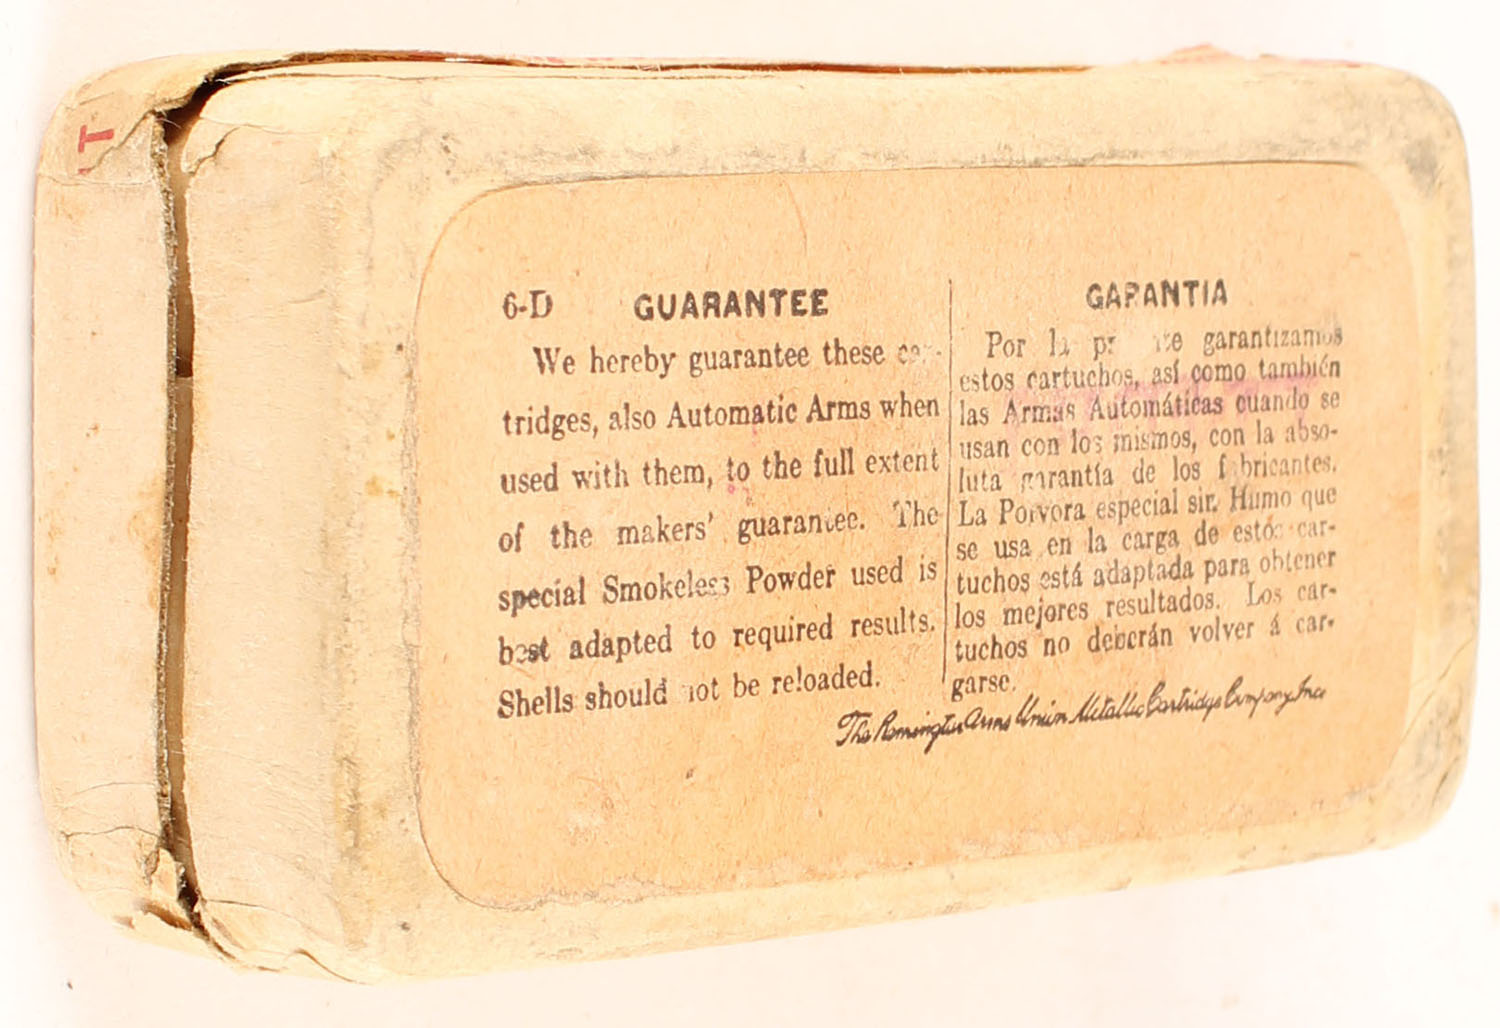 T
6-D GUARANTEE
We hereby guarantee these car-
tridges, also Automatic Arms when
used with them, to the full extent
of the makers' guarantee. The
special Smokeless Powder used is
best adapted to required results.
Shells should not be reloaded.
GARANTIA
Por la garantizamos
estos cartuchos, así como también
las Armas Automáticas cuando se
usan con los mismos, con la abso-
luta garantía de los fabricantes.
La Polvora especial sin Humo que
se usa en la carga de estos car-
tuchos está adaptada para obtener
los mejores resultados. Los car-
tuchos no deberán volver á car-
garse.
The Remington Arms Union Metallic Cartridge Company, Inc.